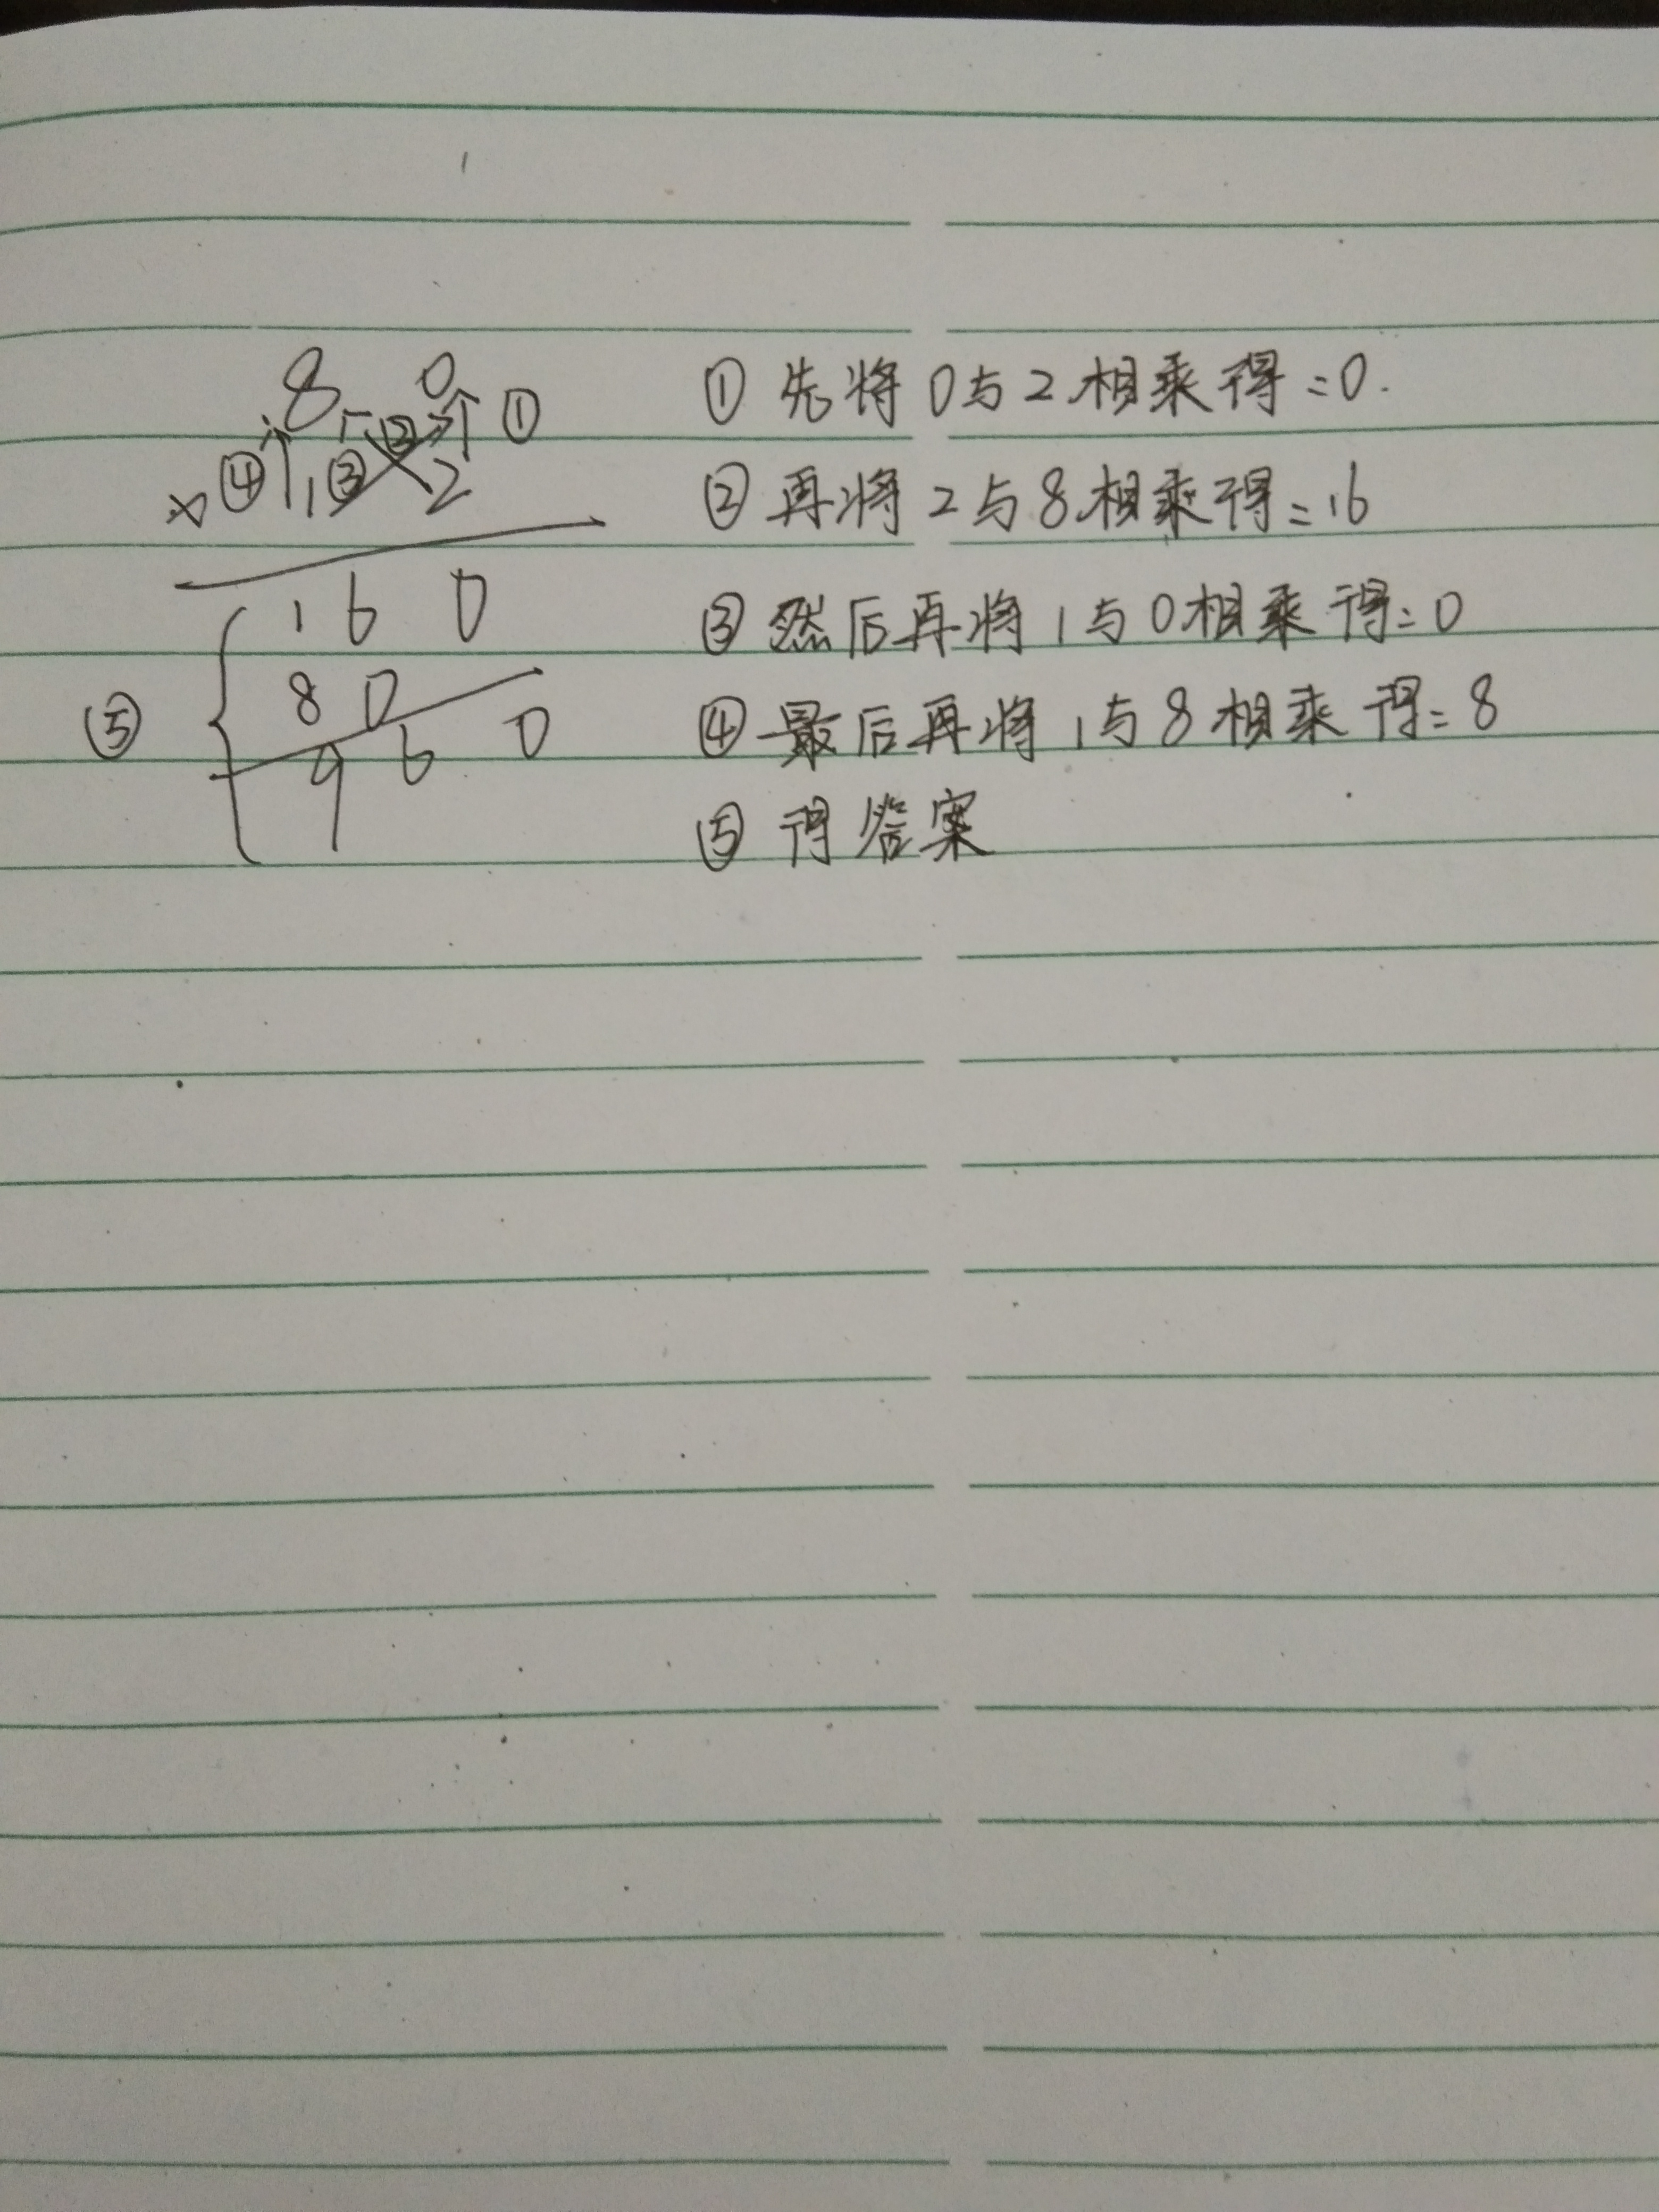 8 0
② ①
× ④ 1 ③ 2
1 6 0
8 0
⑤ 9 6 0
① 先将0与2相乘得=0.
② 再将2与8相乘得=16
③ 然后再将1与0相乘得=0
④ 最后再将1与8相乘得=8
⑤ 得答案